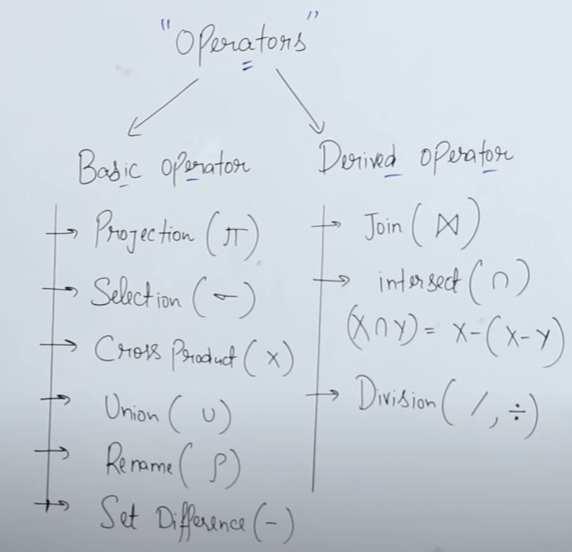 "Operators"
Basic operator
→ Projection (π)
→ Selection (σ)
→ Cross Product (×)
→ Union (∪)
→ Rename (ρ)
→ Set Difference (-)
Derived operator
→ Join (⋈)
→ intersect (∩)
(X∩Y) = X-(X-Y)
→ Division (/, ÷)